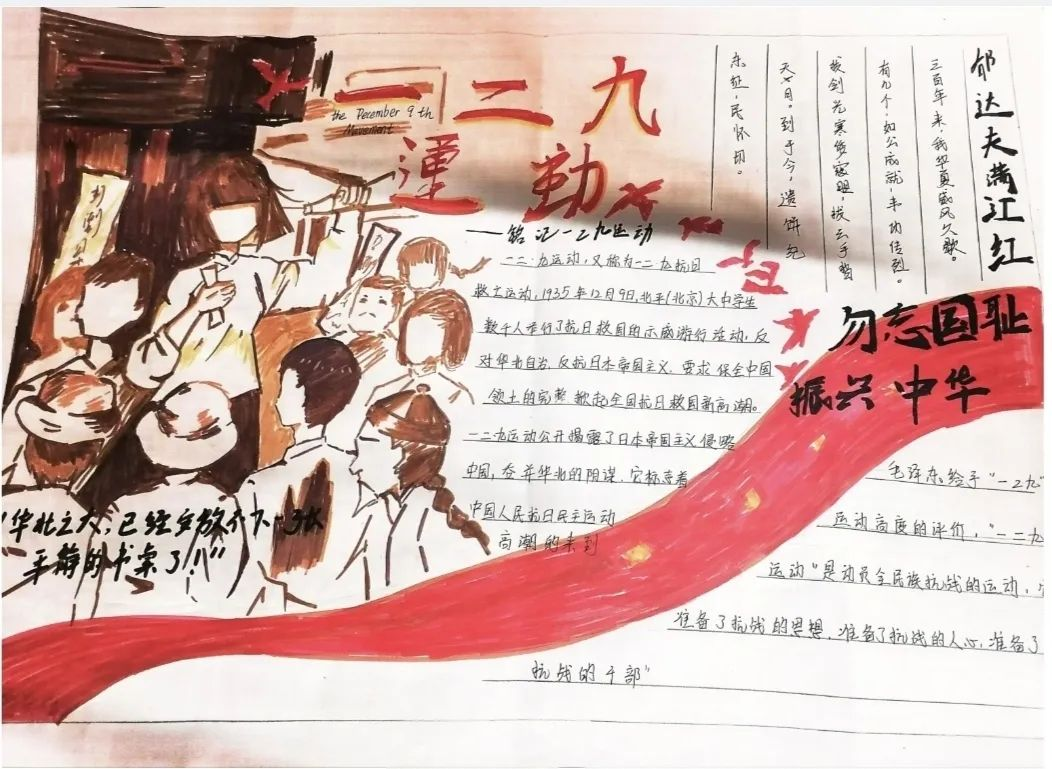 一二九
the December 9th
Movement
運動
——铭记一二九运动
一二·九运动，又称为一二九抗日
救亡运动，1935年12月9日，北平（北京）大中学生
数千人举行了抗日救国的示威游行活动，反
对华北自治，反抗日本帝国主义，要求保全中国
领土的完整 掀起全国抗日救国新高潮。
一二九运动公开揭露了日本帝国主义侵略
中国，吞并华北的阴谋，它标志着
中国人民抗日民主运动
高潮的来到
郁达夫满江红
三百年来，我华夏威风久歇。
有几个，如公成就，丰功伟烈。
拔剑光寒倭寇胆，拔云手指
天心月。到于今，遗饼纪
东征，民怀切。
勿忘国耻
振兴中华
"华北之大，已经安放不下一张
平静的书桌了！"
毛泽东给予"一二九"
运动高度的评价，"一二九
运动"是动员全民族抗战的运动，它
准备了抗战的思想，准备了抗战的人心，准备了
抗战的干部"